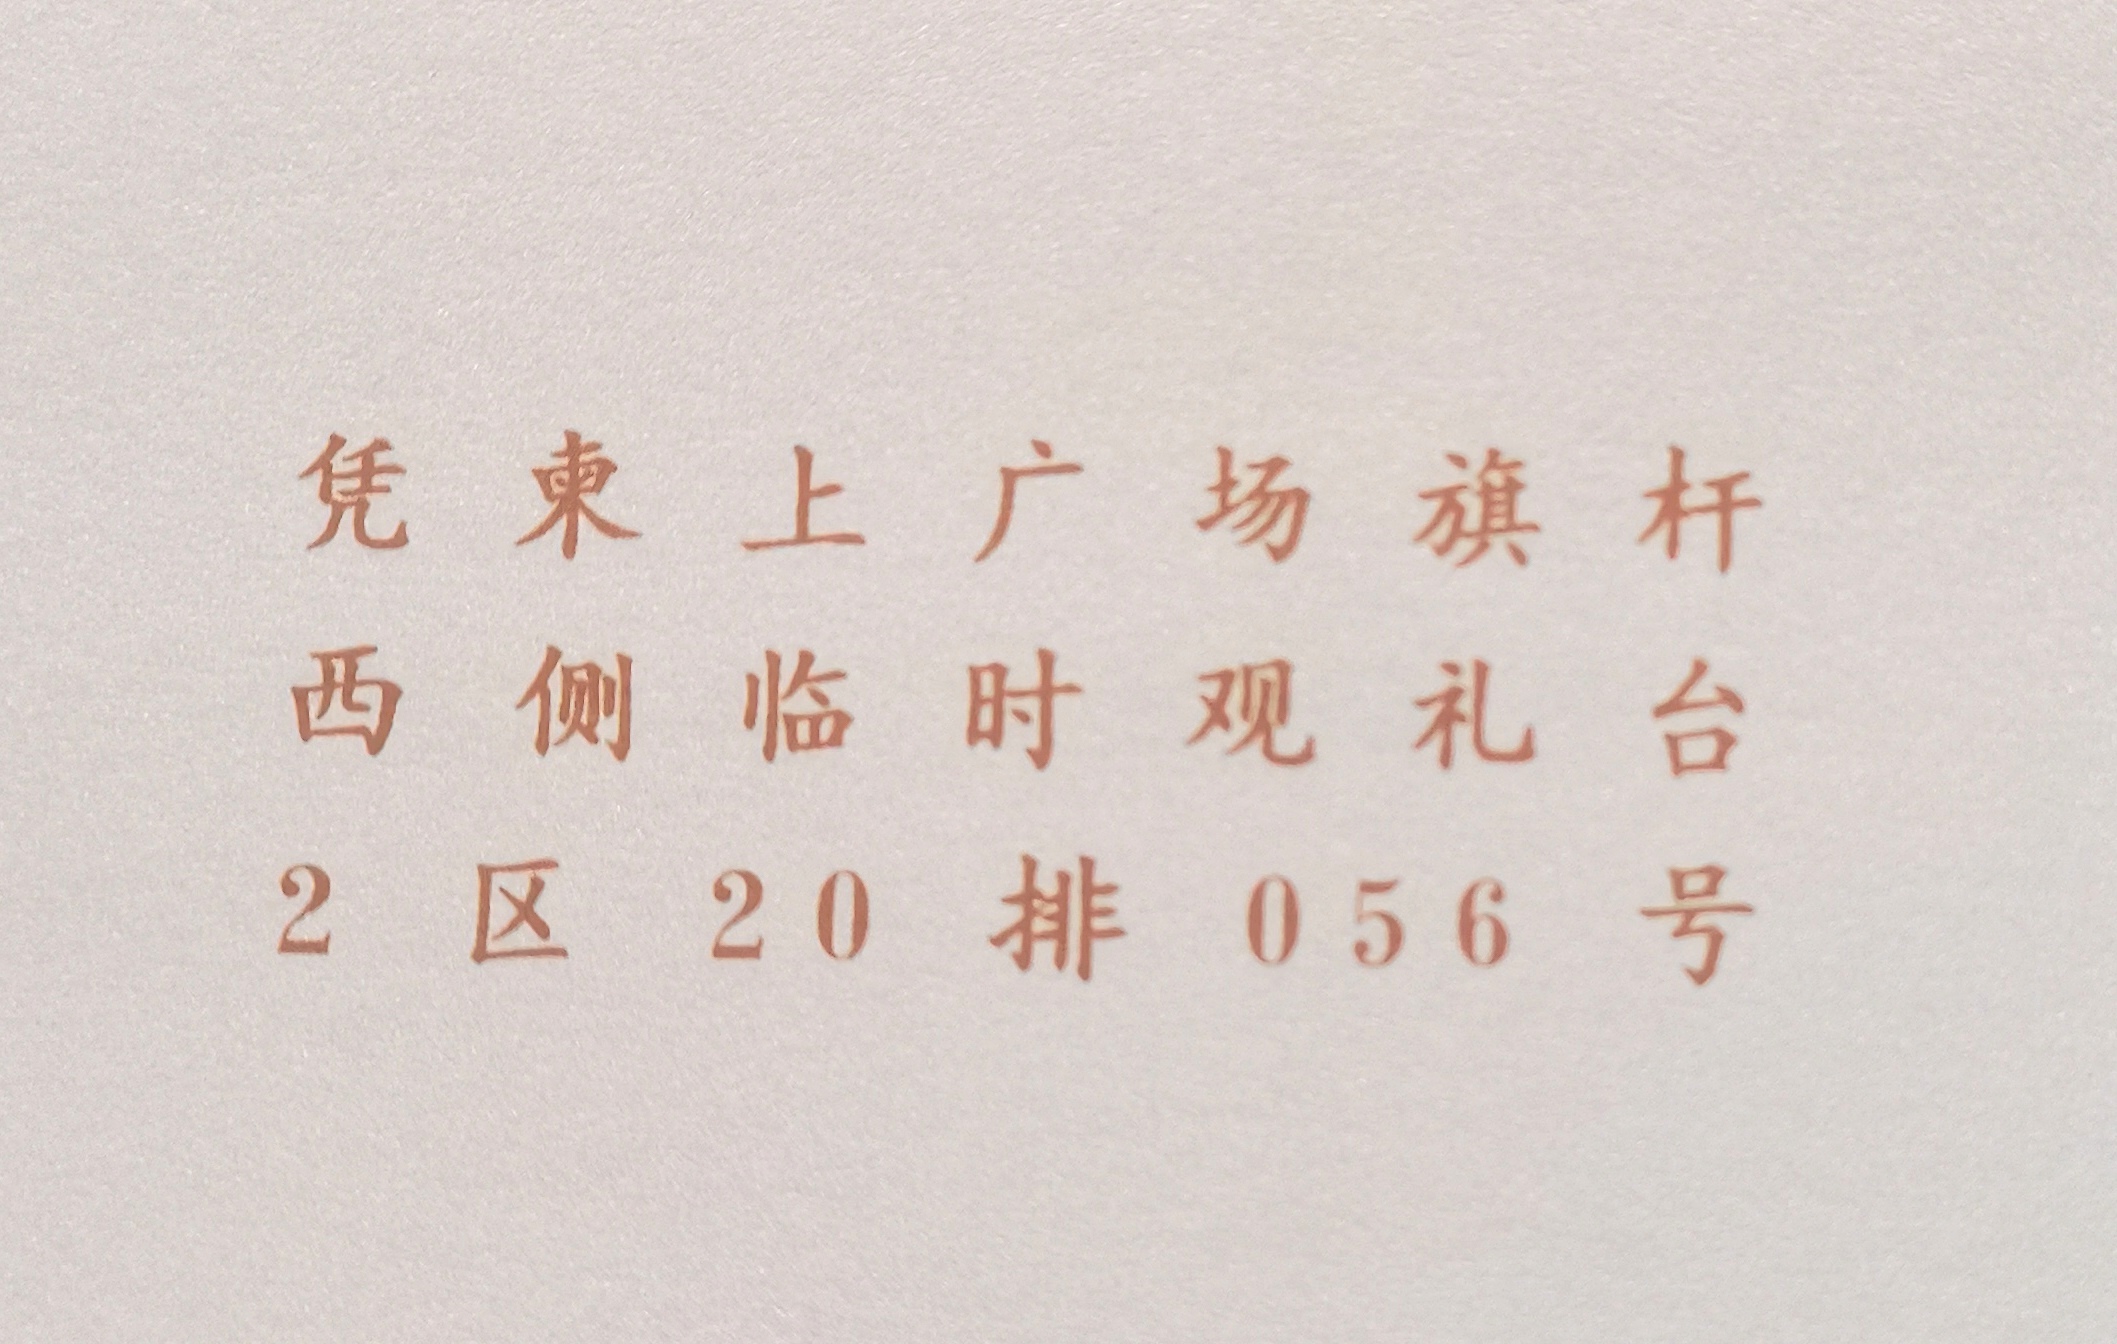 凭柬上广场旗杆
西侧临时观礼台
2区20排056号